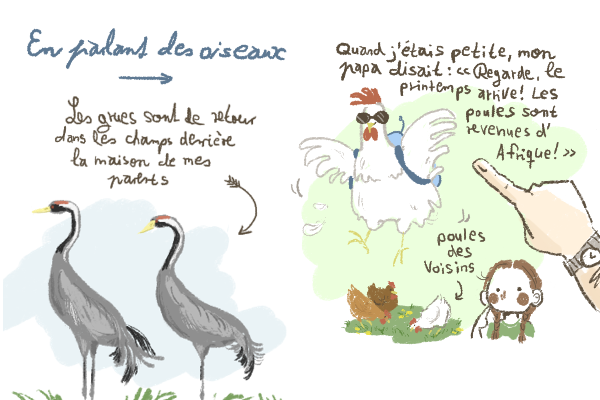 En parlant des oiseaux
Les grues sont de retour
dans les champs derrière
la maison de mes
parents
Quand j'étais petite, mon
papa disait: << Regarde, le
printemps arrive! Les
poules sont
revenues d'
Afrique! >>
poules
des
voisins